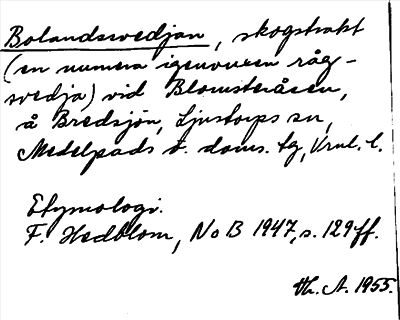 Bolandssvedjan, skogstrakt
(en numera igenvuxen råg-
svedja) vid Blomsteråsen,
å Bredsjön, Ljustorps sn,
Medelpads v. doms. tg, Vrnl. l.
Etymologi.
F. Hedblom, NoB 1947, s. 129 ff.
Th. A. 1955.